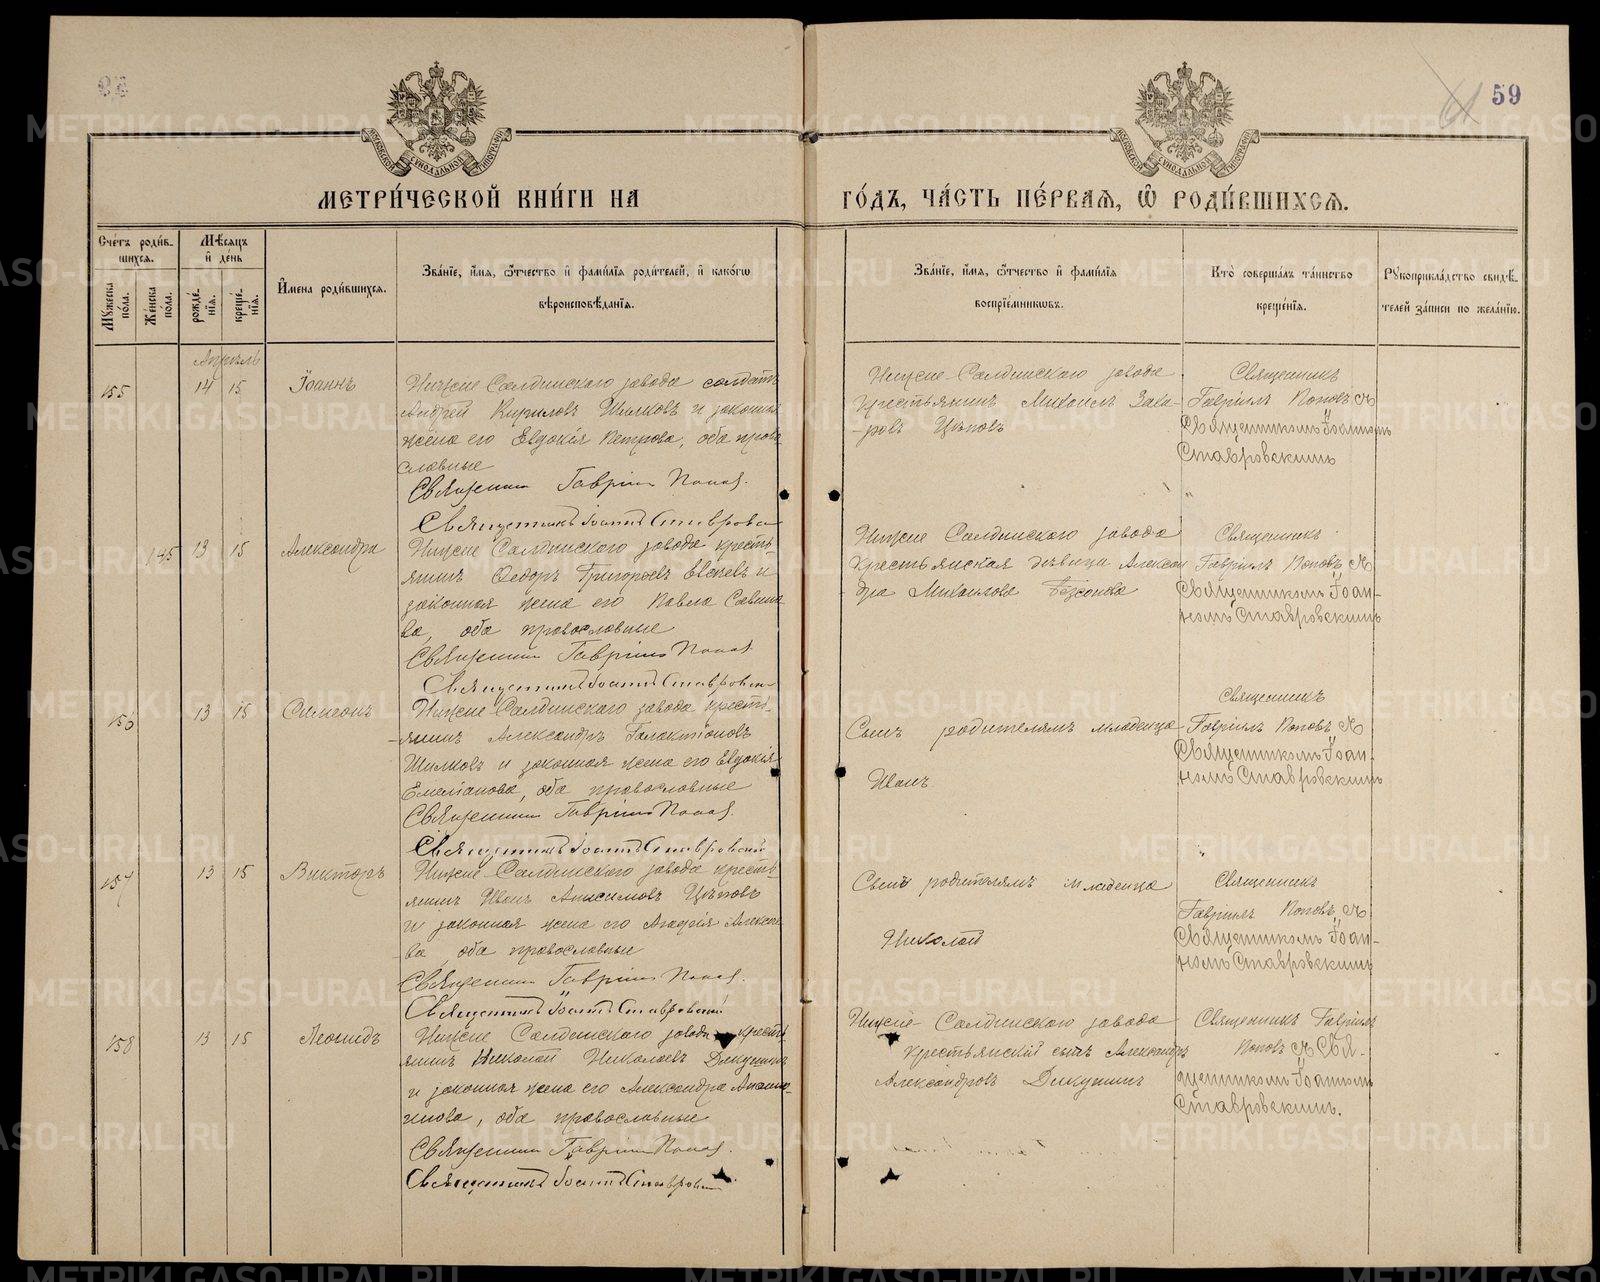 59
61
МОСКОВСКОЙ СѴНОДАЛЬНОЙ ТИПОГРАФІИ
МОСКОВСКОЙ СѴНОДАЛЬНОЙ ТИПОГРАФІИ
МЕТРИ́ЧЕСКОЙ КНИ́ГИ НА
ГО́ДЪ, ЧА́СТЬ ПЕ́РВАѦ, Ѡ РОДИ́ВШИХСѦ.
Сче́тъ роди́в-
шихсѧ.
Мꙋжеска по́ла.
Же́нска по́ла.
Мѣ́сѧцъ
и҆ де́нь
рожде́-
нїѧ.
креще́-
нїѧ.
И҆мена роди́вшихсѧ.
Зва́нїе, и҆́мѧ, ѻ҆́тчество и҆ фами́лїѧ роди́телей, и҆ како́гѡ
вѣроисповѣ́данїѧ.
Зва́нїе, и҆́мѧ, ѻ҆́тчество и҆ фами́лїѧ
воспрїе́мникѡвъ.
Кто̀ соверша́лъ та́инство
креще́нїѧ.
Рꙋкоприкла́дство свидѣ́-
телей за́писи по жела́нїю.
Апрѣль
155 14 15 Іоаннъ
Нижне-Салдинскаго завода солдатъ
Андрей Кириловъ Шилковъ и законная
жена его Евдокія Петрова, оба право
славные
Священникъ Гавріилъ Поповъ.
Священникъ Іоаннъ Ставровскій
Нижне-Салдинскаго завода
крестьянинъ Михаилъ Заха-
ровъ Цѣповъ
Священникъ
Гавріилъ Поповъ съ
Священникомъ Іоанномъ
Ставровскимъ
145 13 15 Александра
Нижне-Салдинскаго завода кресть-
янинъ Ѳедоръ Григорьевъ и
законная жена его Павла Савино-
ва, оба православные
Священникъ Гавріилъ Поповъ
Священникъ Іоаннъ Ставровскій
Нижне Салдинскаго завода
крестьянская дѣвица Алексан
дра Михаилова
Священникъ
Гавріилъ Поповъ съ
Священникомъ Іоан-
номъ Ставровскимъ
156 13 15 Симеонъ
Нижне-Салдинскаго завода кресть-
янинъ Александръ Галактіоновъ
Шилковъ и законная жена его Евдокія
Емеліанова, оба православные
Священникъ Гавріилъ Поповъ.
Священникъ Іоаннъ Ставровскій
Сынъ родителямъ младенца
Иванъ
Священникъ
Гавріилъ Поповъ съ
Священникомъ Іоан-
номъ Ставровскимъ
157 13 15 Викторъ
Нижне-Салдинскаго завода кресть-
янинъ Иванъ Анисимовъ Цѣповъ
и законная жена его Агафія Алексѣе-
ва, оба православные
Священникъ Гавріилъ Поповъ.
Священникъ Іоаннъ Ставровскій
Сынъ родителямъ младенца
Николай
Священникъ
Гавріилъ Поповъ съ
Священникомъ Іоан-
номъ Ставровскимъ
158 13 15 Леонидъ
Нижне Салдинскаго завода кресть-
янинъ Николай Николаевъ Дикушинъ
и законная жена его Александра
оба православные
Священникъ Гавріилъ Поповъ.
Священникъ Іоаннъ Ставровскій
Нижне-Салдинскаго завода
крестьянскій сынъ Александръ
Александровъ Дикушинъ
Священникъ Гавріилъ
Поповъ съ Свя-
щенникомъ Іоанномъ
Ставровскимъ.
METRIKI.GASO-URAL.RU